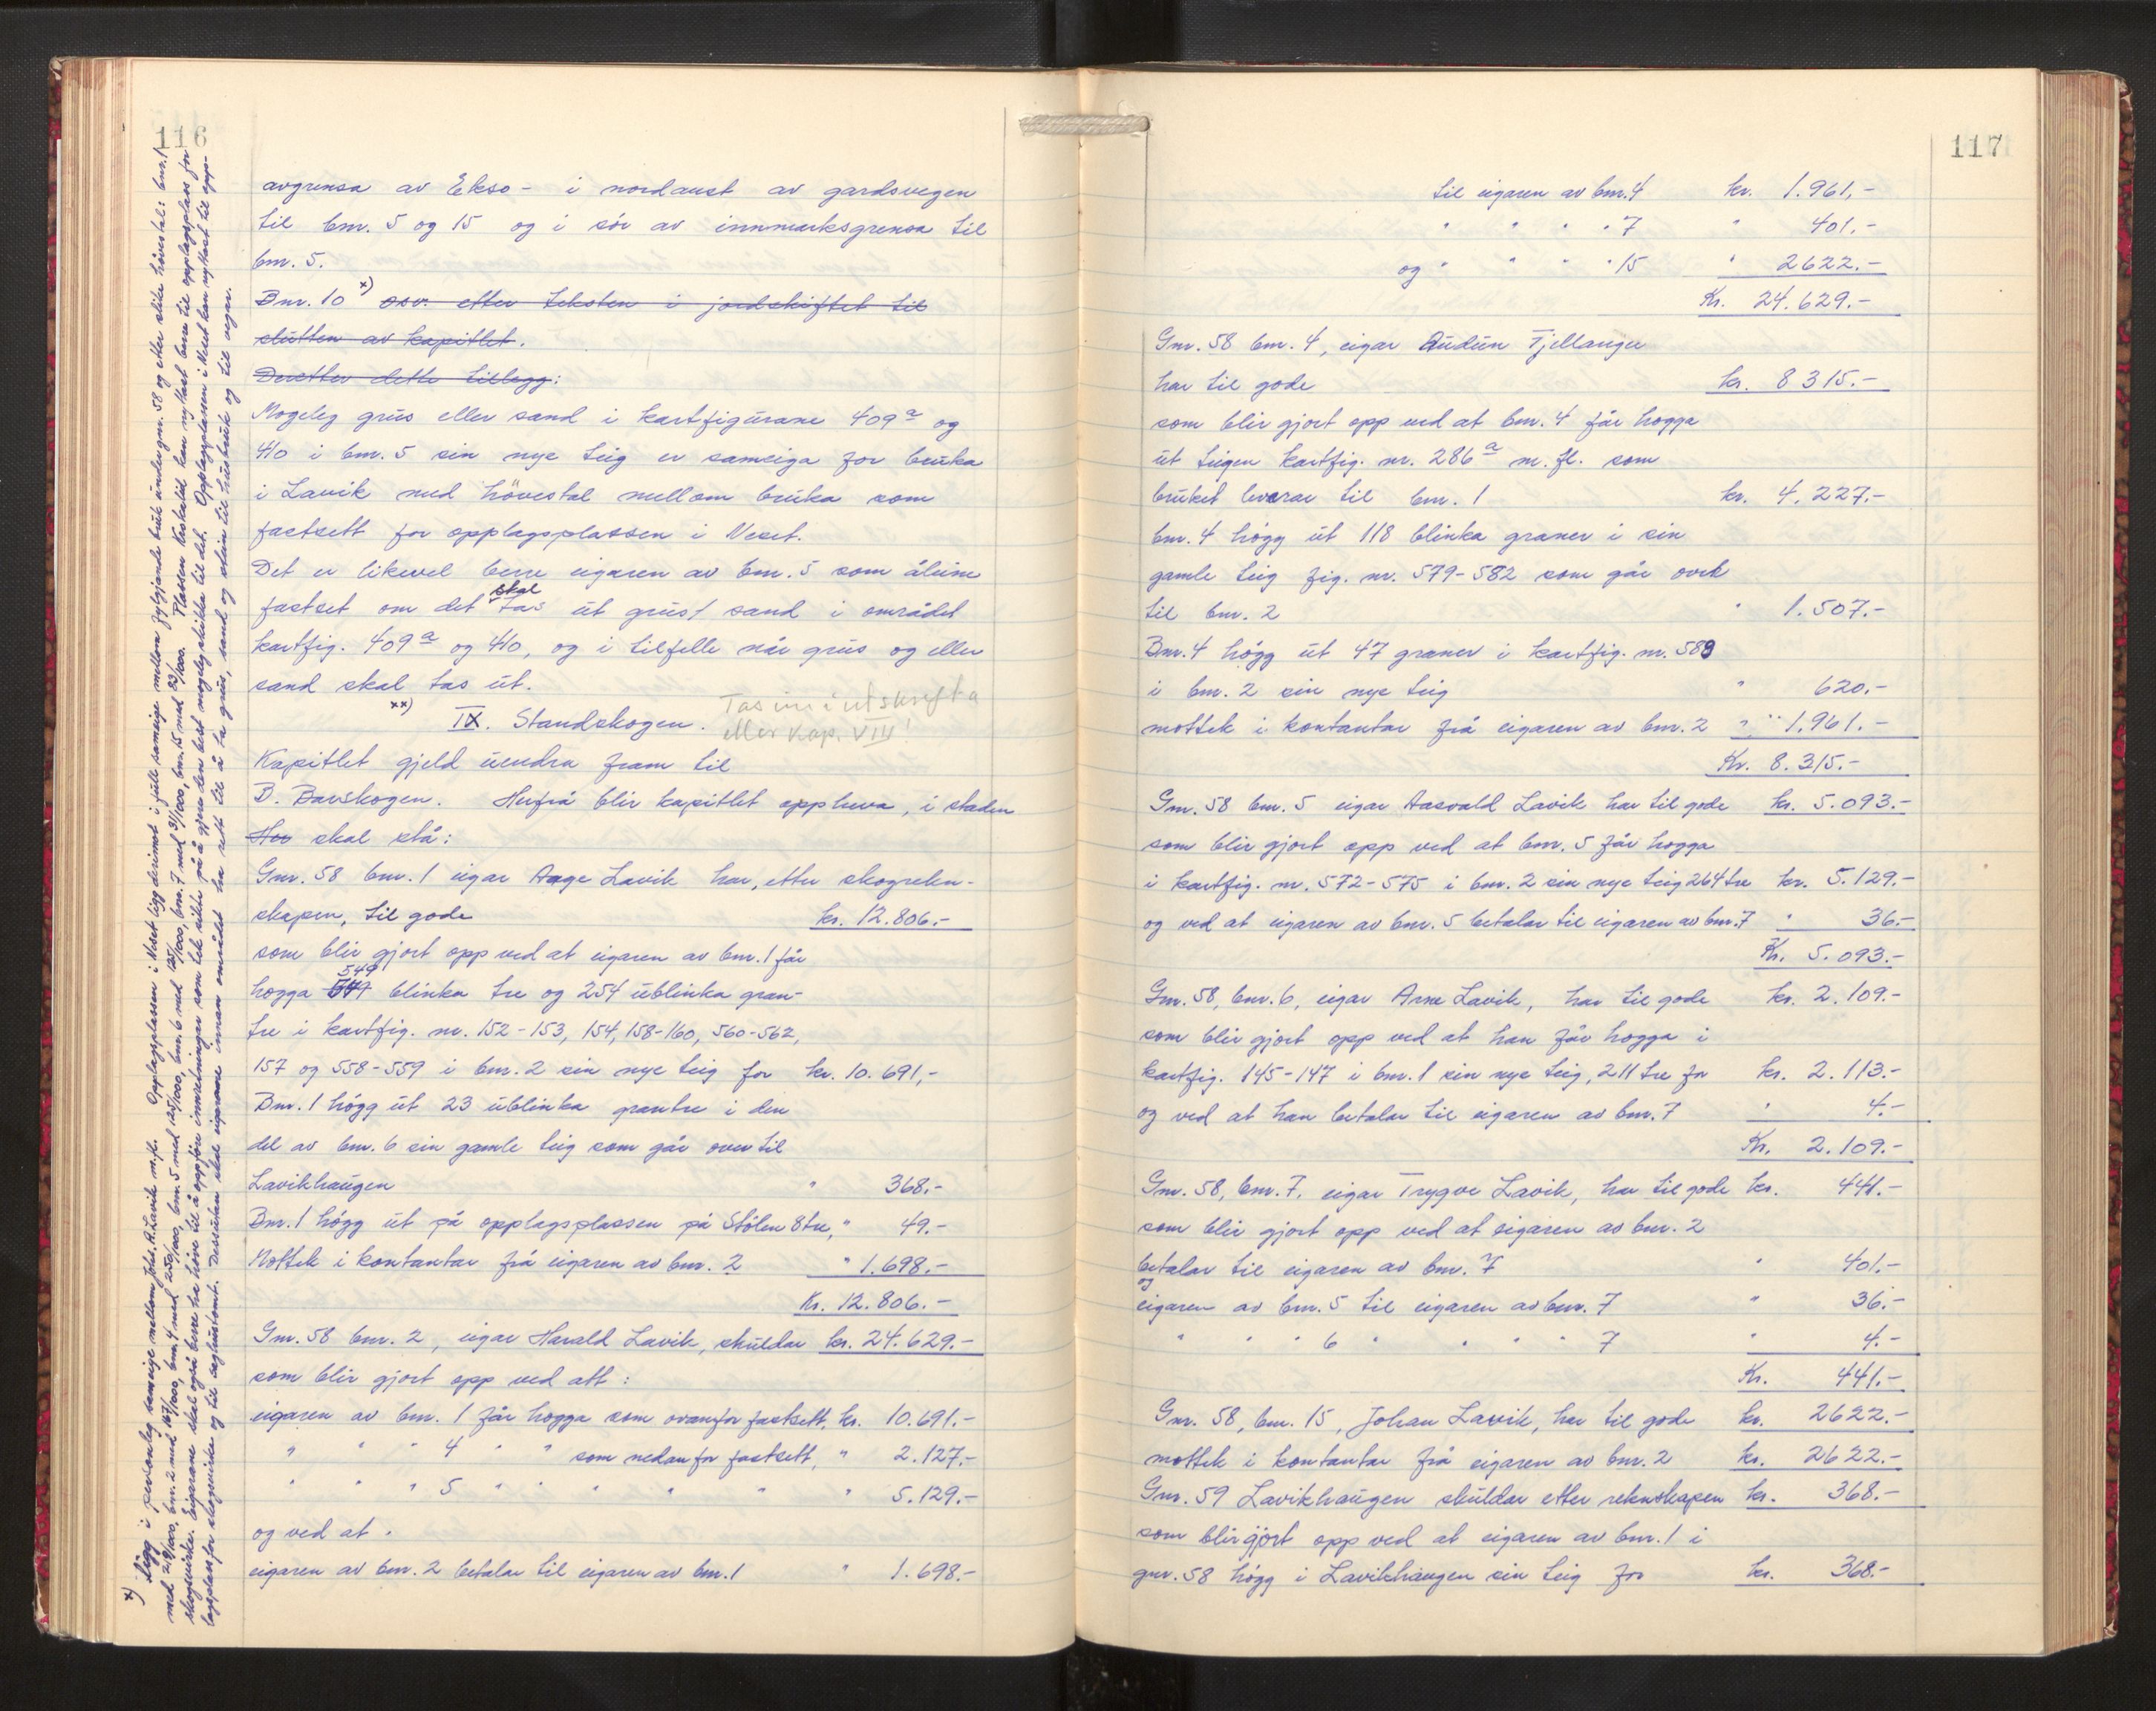 116
avgrensa av Ekso - i nordaust av gardsvegen
til bnr. 5 og 15 og i sør av innmarksgrensa til
bnr. 5.
Bnr. 10 x) osv. etter teksten i jordskiftet til
slutten av kapitlet.
Deretter dette tillegg:
Mogeleg grus eller sand i kartfigurane 409a og
410 i bnr. 5 sin nye teig er sameiga for bruka
i Lavik med hövestal mellom bruka som
fastsett for opplagsplassen i Neset.
Det er likevel berre eigaren av bnr. 5 som åleine
fastset om det skal tas ut grus/sand i området
kartfig. 409a og 410, og i tilfelle når grus og eller
sand skal tas ut.
xx)
IX. Standskogen. Tas inn i utskrifta
eller Kap. VIII!
Kapitlet gjeld uendra fram til
B. Barskogen. Herfrå blir kapitlet oppheva, i staden
Her skal stå:
Gnr. 58 bnr. 1 eigar Aage Lavik har, etter skogreken-
skapen, til gode kr. 12.806.-
som blir gjort opp ved at eigaren av bnr. 1 får
549
hogga 549 blinka tre og 254 ublinka gran-
tre i kartfig. nr. 152-153, 154, 158-160, 560-562,
157 og 558-559 i bnr. 2 sin nye teig for kr. 10.691,-
Bnr. 1 högg ut 23 ublinka grantre i den
del av bnr. 6 sin gamle teig som går over til
Lavikhaugen " 368.-
Bnr. 1 högg ut på opplagsplassen på Stölen 8 tre, " 49.-
Mottek i kontantar frå eigaren av bnr. 2 " 1.698.-
Kr. 12.806.-
Gnr. 58 bnr. 2, eigar Harald Lavik, skuldar kr. 24.629.-
som blir gjort opp ved att:
eigaren av bnr. 1 får hogga som ovanfor fastsett, kr. 10.691.-
" " " 4 " " som nedanfor fastsett, " 2.127.-
" " " 5 " " " " " " 5.129.-
og ved at.
eigaren av bnr. 2 betalar til eigaren av bnr. 1 " 1.698.-
x) Ligg i personleg sameige mellom Johs. R. Lavik m.fl. Opplagsplassen i Neset ligg derimot i fullt sameige mellom fylgjande bruk under gnr. 58 og etter slike hövestal: bnr. 1
med 219/1000, bnr. 2 med 167/1000, bnr. 4 med 250/1000, bnr. 5 med 125/1000, bnr. 6 med 125/1000, bnr. 7 med 31/1000, bnr. 15 med 83/1000. Plassen kan nyttast berre til opplagsplass for
skogsvirke. Eigarane skal også berre ha höve til å oppföre innretningar som tek sikte på å gjere den best mogeleg skikka til det. Opplagsplassen i Neset kan nyttast til opp-
lagsplass for skogsvirke og til sagtomt. Dessutan skal eigarane innan området ha rett til å ta grus, sand og stein til husbruk og til vegar.
117
til eigaren av bnr. 4 kr. 1.961,-
" " " " 7 " 401.-
og " " " " 15 " 2622.-
Kr. 24.629.-
Gnr. 58 bnr. 4, eigar Audun Fjellanger
har til gode kr. 8315.-
som blir gjort opp ved at bnr. 4 får hogga
ut teigen kartfig. nr. 286a m.fl. som
bruket leverar til bnr. 1 kr. 4.227.-
bnr. 4 högg ut 118 blinka graner i sin
gamle teig fig. nr. 579-582 som går over
til bnr. 2 " 1.507.-
Bnr. 4 högg ut 47 graner i kartfig. nr. 583
i bnr. 2 sin nye teig " 620.-
mottek i kontantar frå eigaren av bnr. 2 " 1.961.-
Kr. 8.315.-
Gnr. 58 bnr. 5 eigar Aasvald Lavik har til gode kr. 5.093.-
som blir gjort opp ved at bnr. 5 får hogga
i kartfig. nr. 572-575 i bnr. 2 sin nye teig 264 tre kr. 5.129.-
og ved at eigaren av bnr. 5 betalar til eigaren av bnr. 7 " 36.-
Kr. 5.093.-
Gnr. 58, bnr. 6, eigar Arne Lavik, har til gode kr. 2.109.-
som blir gjort opp ved at han får hogga i
kartfig. 145-147 i bnr. 1 sin nye teig, 211 tre for kr. 2.113.-
og ved at han betalar til eigaren av bnr. 7 " 4.-
Kr. 2.109.-
Gnr. 58, bnr. 7, eigar Trygve Lavik, har til gode kr. 441.-
som blir gjort opp ved at eigaren av bnr. 2
betalar til eigaren av bnr. 7 " 401.-
og
eigaren av bnr. 5 til eigaren av bnr. 7 " 36.-
" " " 6 " " " " 7 " 4.-
Kr. 441.-
Gnr. 58, bnr. 15, Johan Lavik, har til gode kr. 2622.-
mottek i kontantar frå eigaren av bnr. 2 kr. 2622.-
Gnr. 59 Lavikhaugen skuldar etter rekneskapen kr. 368.-
som blir gjort opp ved at eigaren av bnr. 1 i
gnr. 58 högg i Lavikhaugen sin teig for kr. 368.-